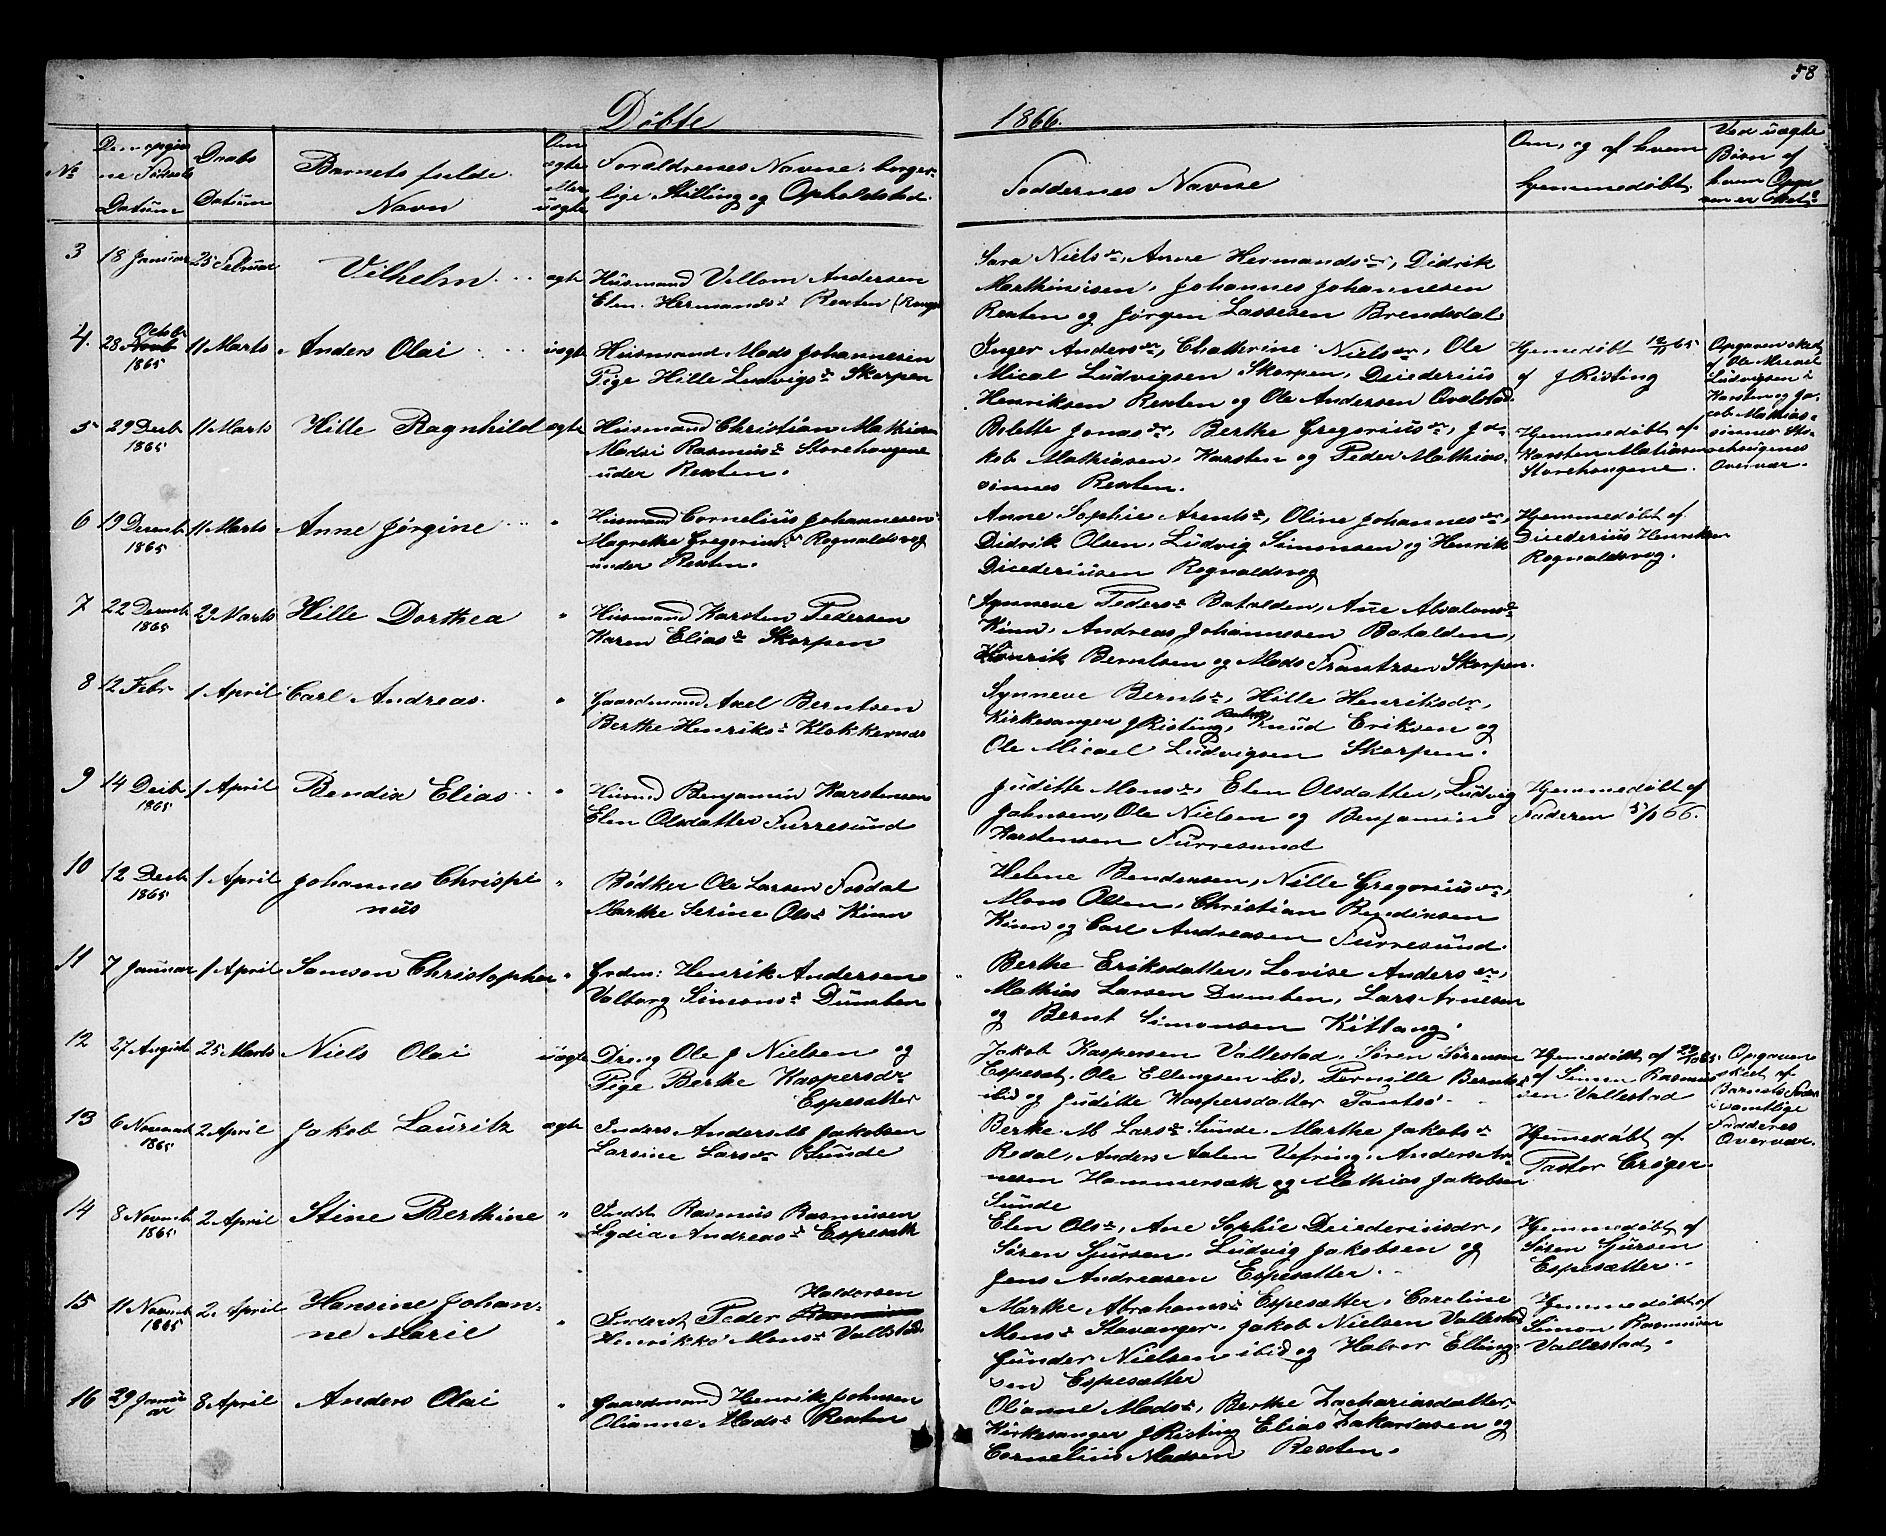 58
Döbte
1866.
No
Den opgivne Fødsels Datum
Daabs Datum
Barnets fulde Navn
Om ægte eller uægte
Forældrenes Navne, borgerlige Stilling og Opholdsted.
Faddernes Navne
Om, og af hvem hjemmedøbt.
Ved uægte Børn af hvem Opgaven er skeet
3
18 Januar
25 Februar
Vilhelm
ægte
Husmand Vellom Andersen
Elen Hermandsdr Rexten
Sara Nielsdr, Anne Hermandsdr, Didrik
Marthinisen, Johannes Johannesen
Rexten og Jørgen Lassesen Brendsdal
4.
28 Octobr
1865
11 Marts
Anders Olai
uægte
Husmand Mads Johannesen
Pige Hille Ludvigsdr Skorpen
Inger Andersdr, Chatterine Nielsdr, Ole
Mical Ludvigsen Skorpen, Diederius
Henriksen Rexten og Ole Andersen Qvalstad
Hjemmedøbt 12/11 65
af J Risting
Opgaven skeet
af Ole Micael
Ludvigsen i
Karsten og Ja-
cob Mathias-
sønner Sto-
rehougenes
Overvær.
5
29 Decbr
1865
11 Marts
Hille Ragnhild
ægte
Husmand Christian Mathisen
Madsi Rasmusdr Storehougene
under Rexten.
Bolette Jonasdr, Berthe Gregoriusdr, Ja-
kob Mathiasen, Karsten og Peder Mathias-
sønnes Rexten.
Hjemmedøbt af
Karsten Matiasen
Storehougene.
6
19 Decembr
1865
11 Marts
Anne Jørgine
"
Husmand Cornelius Johannesen
Magrethe Gregoriusdr Rognaldsvog
under Rexten.
Anne Sophie Arentsdr, Oline Johannesdr,
Didrik Olsen, Ludvig Simonsen og Henrik
Diederiusen Rognaldsvog
Hjemmedøbt af
Diederius Henriksen
Rognaldsvog.
7
22 Decembr
1865
29 Marts
Hille Dorthea
"
Husmand Karsten Pedersen
Karen Eliasdr Skorpen
Synneve Pedersdr Batalden, Ane Absalonsdr
Kinn, Andreas Johannesen Batalden,
Henrik Berntsen og Mads Frantzsen Skorpen.
8
12 Febr
1 April
Carl Andreas.
"
Gaardmand Axel Berntsen
Berthe Henriksdr Klokkernæs
Synneve Berntsdr, Hille Henriksdr,
Kirkesanger J Risting, Knud Eriksen og
Ole Micael Ludvigsen Skorpen.
9
14 Decbr
1865
1 April
Bendix Elias
"
Husmd Benjamin Karstensen
Elen Olsdatter Furresund
Juditte Monsdr, Elen Olsdatter, Ludvig
Johnsen, Ole Nielsen og Benjamin
Karstensen Furresund
Hjemmedøbt af
Faderen 5/1 66.
10
12 Decbr
1865
1 April
Johannes Chrispi
nus
"
Bødker Ole Larsen Fosdal
Marthe Serine Olsdr Kinn
Helene Bendixsen, Nille Gregoriusdr,
Mons Olsen, Christian Bendixsen
Kinn og Carl Andreasen Furresund.
11
7 Januar
1 April
Samson Christopher
"
Grdm: Henrik Andersen
Valborg Simonsdr Dumben
Berthe Eriksdatter, Lovise Andersdr,
Mathias Larsen Dumben, Lars Arnesen
og Bernt Simonsen Kittang.
12
27 August
25 Marts
Niels Olai
uægte
Dreng Ole J Nielsen og
Pige Berthe Kaspersdr
Espesætter
Jakob Kaspersen Vallestad, Søren Sørensen
Espeset, Ole Ellengsen ibid, Pernille Berntsdr
ibid og Juditte Kaspersdatter Tantsø.
Hjemmedøbt
af Simon Rasmus-
sen Vallestad
Opgaven
skeet af
Barnets Fader
i samtlige
Fadderes
Overvær.
13
6 Novembr
1865
2 April
Jakob Lauritz
ægte
Inders. Anders M Jakobsen
Larsine Larsdr Sunde
Berthe M Larsdr Sunde, Marthe Jakobsdr
Redal, Anders Aslen Vefring, Anders Ar-
nesen Hammersæth og Mathias Jakobsen
Sunde
Hjemmedøbt af
Pastor Crøger
14
8 Novembr
1865
2 April
Stine Berthine
"
Indst. Rasmus Rasmusen
Lydia Andreasdr Espesæth
Elen Olsdr, Ane Sophie Diederiusdr,
Søren Sjursen, Ludvig Jakobsen og
Jens Andreasen Espesætter.
Hjemmedøbt af
Søren Sjursen
Espesætter
15
11 Novembr
1865
2 April
Hansine Johan-
ne Marie
"
Haldorsen
Inderst Peder
Henrikke Monsdr Vallestad
Marthe Abrahamsdr Espesætter, Caroline
Monsdr Stavanger, Jakob Nielsen Vallestad
Gunder Nielsen ibid og Halvor Elling-
sen Espesætter
Hjemmedøbt af
Simon Rasmusen
Vallestad.
16
29 Janu
ar
8 April
Anders Olai
"
Gaardmand Henrik Johnsen
Olianne Madsdr Rexten
Olianne Madsdr, Berthe Zachariasdatter
Kirkesanger J Risting, Elias Zakariasen og
Cornelius Madsen Rexten.